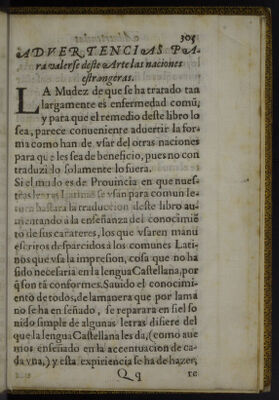 305
ADVERTENCIAS PA-
ra valerse deste Arte las naciones
estrangeras.
LA Mudez de que se ha tratado tan
largamente es enfermedad comũ,
y para que el remedio deste libro lo
sea, parece conueniente aduertir la for-
ma como han de vsar del otras naciones
para que les sea de beneficio, pues no con
traduzido solamente lo fuera.
Si el mudo es de Prouincia en que nues-
tras letras Latinas se vsan para comun le-
tura bastara la traduccion deste libro au-
mentando a la enseñanza del conocimiẽ
to de sus carateres, los que vsaren manu
escritos desparcidos a los comunes Lati-
nos que vsa la impresion, cosa que no ha
sido necesaria en la lengua Castellana, por
q̃ son tã conformes. Sauido el conocimi-
ento de todos, de la manera que por lama
no se ha enseñado, se reparara en si el so
nido simple de algunas letras difiere del
que la lengua Castellana les da, (como aue
mos enseñado en la accentuacion de ca-
da vna,) y esta expiriencia se ha de hazer,
Qq
re